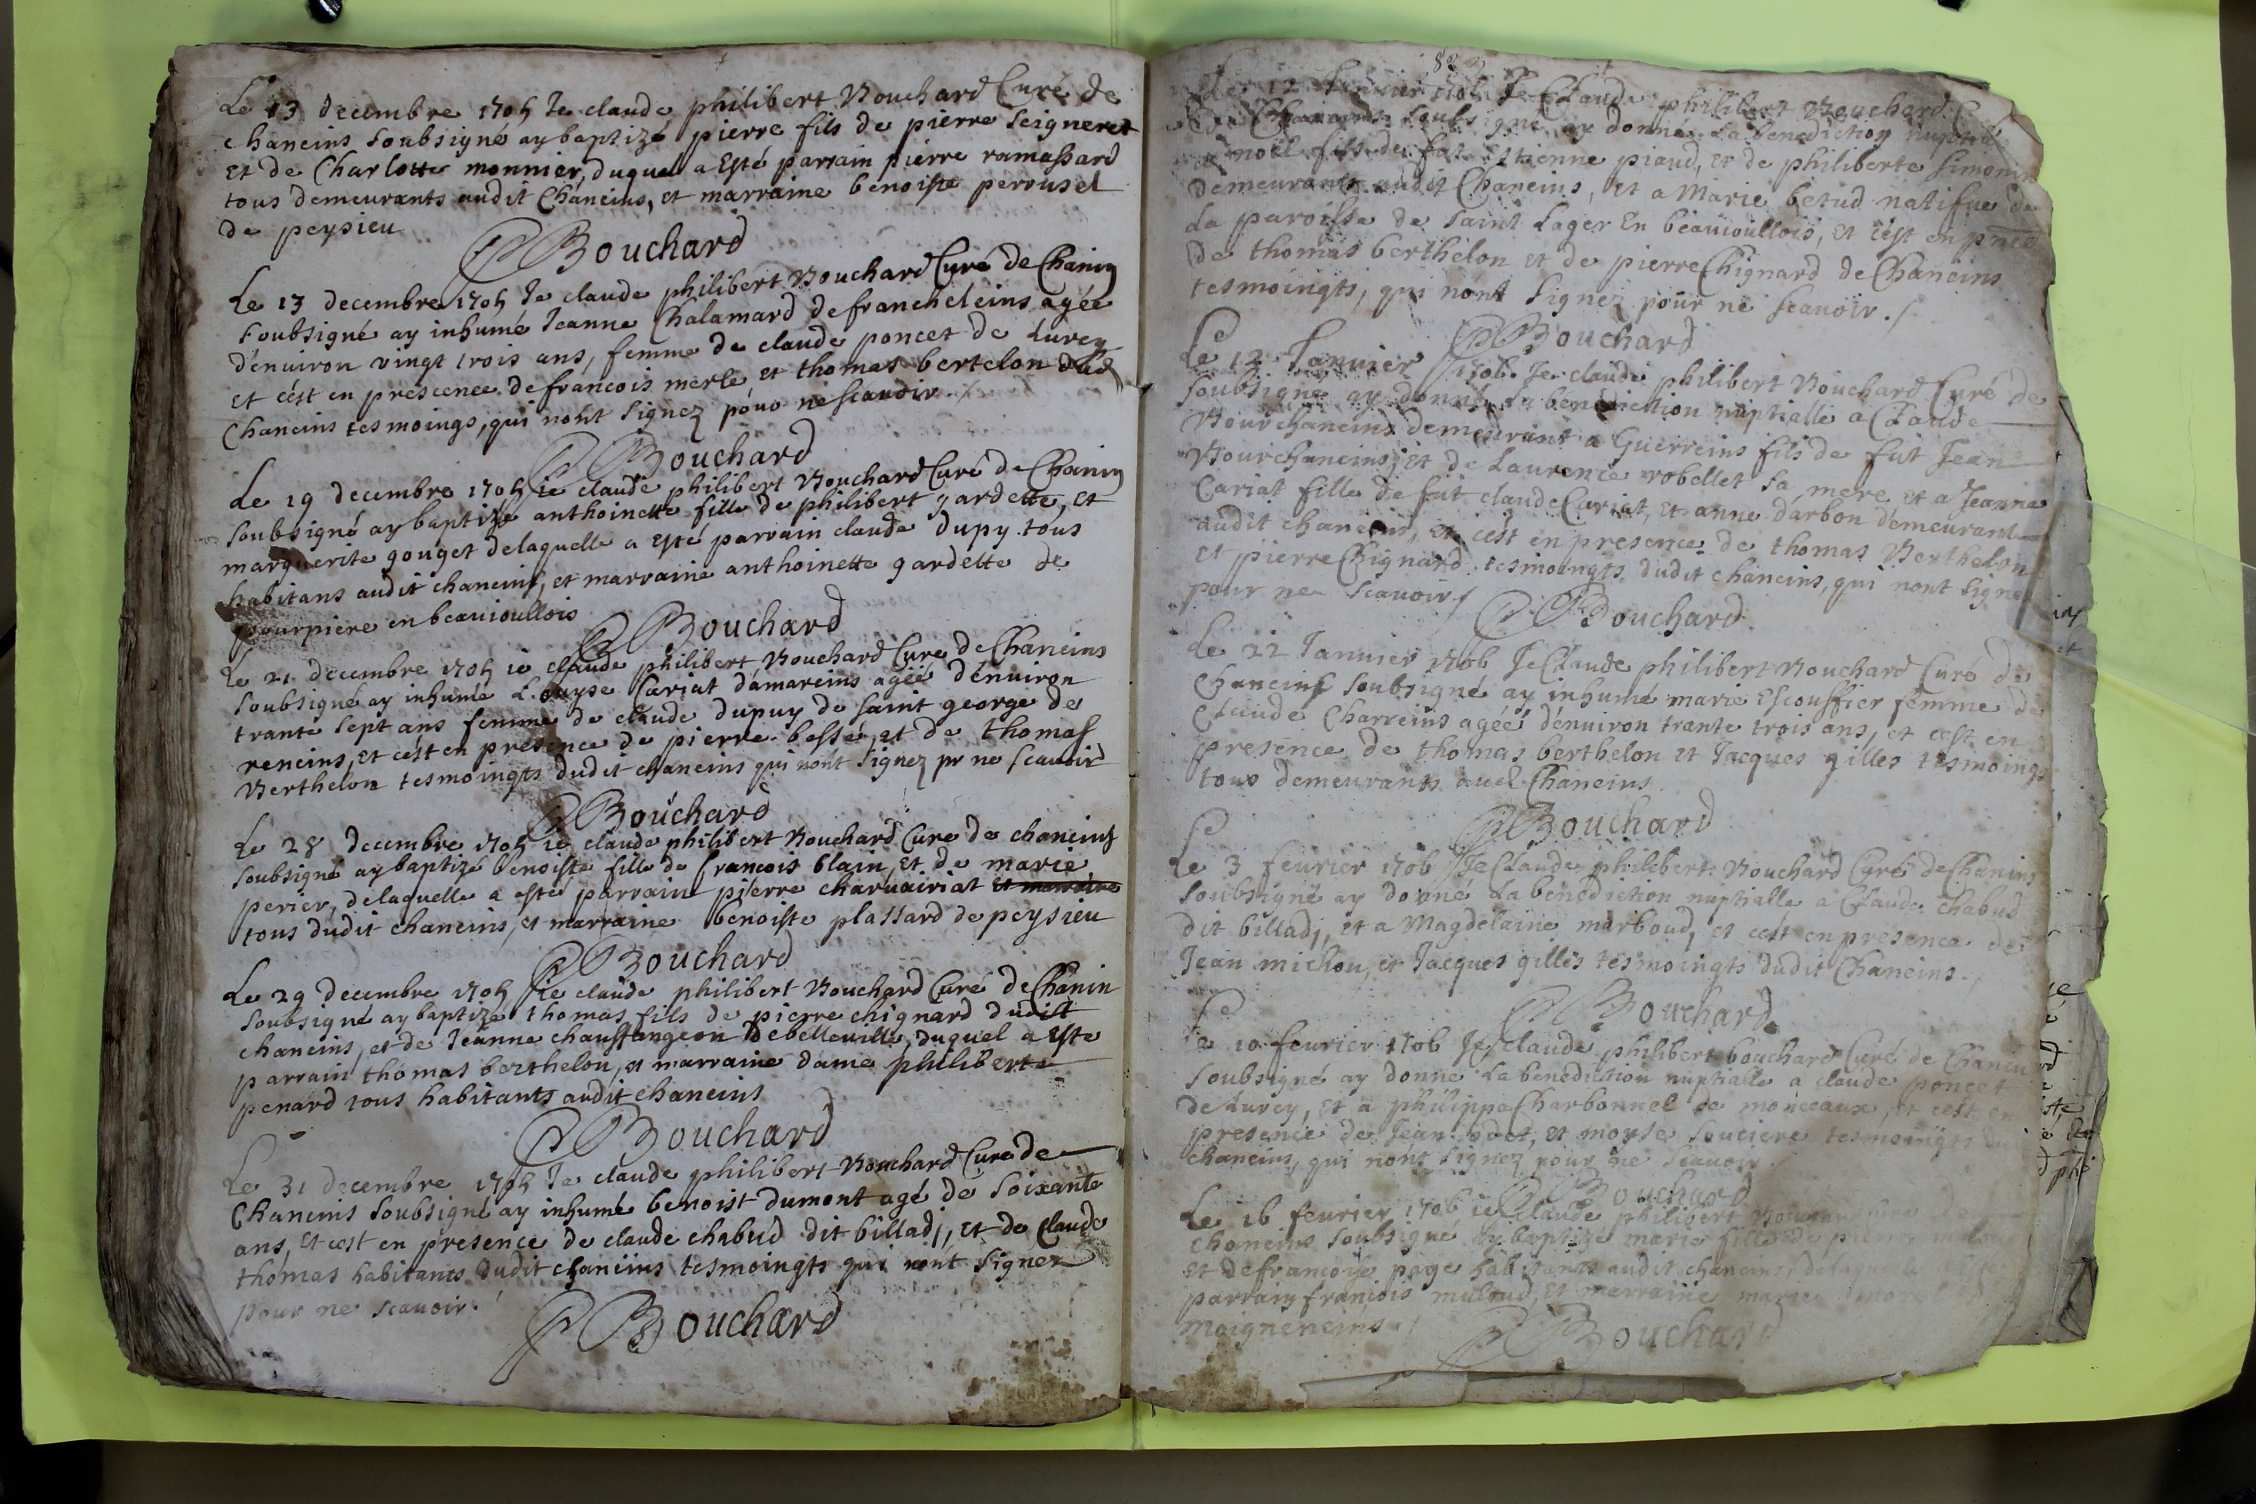 Le 13 decembre 1705 Je claude philibert Bouchard Curé de
chaneins soubsigné ay baptizé pierre fils de pierre Seigneret
et de Charlotte monnier, duquel a esté parrain pierre ramassard
tous demeurants audit Chaneins, et marraine benoiste perrusel
de peysieu
Bouchard
Le 13 decembre 1705 Je claude philibert Bouchard Curé de Chanin
soubsigné ay inhumé Jeanne Chalamard de francheleins agée
d'enuiron vingt trois ans, femme de claude poncet de Lurcy
et cést en prescence de francois merle et thomas bertelon dud
Chaneins tesmoings, qui nont signez pour ne scauoir
Bouchard
Le 19 decembre 1705 ie claude philibert Bouchard Curé de Chanin
soubsigné ay baptizé anthoinette fille de philibert gardette, et
marguerite gouget delaquelle a esté parrain claude Dupy tous
habitans audit chaneins, et marraine anthoinette gardette de
pourpiere en beauioullois
Bouchard
Le 21 decembre 1705 ie claude philibert Bouchard Curé de Chaneins
soubsigné ay inhumé Louyse Cariat d'amareins agéé d'énuiron
trante sept ans femme de claude dupuy de saint george de
reneins, et cést en presence de pierre bessé, et de thomas
Berthelon tesmoingts dudit chaneins qui nont signez pr ne scauoir
Bouchard
Le 28 decembre 1705 ie claude philibert Bouchard Curé de chaneins
soubsigné ay baptizé benoiste fille de francois blain, et de marie
perier, delaquelle a esté parrain pierre charuairiat et marraine
tous dudit chaneins, et marraine benoiste plassard de peysieu
Bouchard
Le 29 decembre 1705 ie claude philibert Bouchard Curé de Chanin
soubsigné ay baptizé thomas fils de pierre chignard dudit
chaneins, et de Jeanne chauffangeon de belleuille, duquel a esté
parrain thomas berthelon, et marraine dame philiberte
penard tous habitants audit chaneins
Bouchard
Le 31 decembre 1705 Je claude philibert Bouchard Curé de
Chaneins soubsigné ay inhumé benoist dumont agé de soixante
ans, et cest en presence de claude chabud dit billadi, et de claude
thomas habitants dudit chaneins tesmoingts qui nont signez
pour ne scauoir.
Bouchard
Le 12 Januier 1706 Je Claude philibert Bouchard
Chaneins soubsigné ay donné la benediction nuptialle
a noel fils de fut Etienne piaud, et de philiberte Simonin
demeurants audit Chaneins, et a Marie betud natifue de
la paroisse de saint Lager en beauioullois, et cést en pnce
de thomas berthelon et de pierre Chignard de Chaneins
tesmoingts, qui nont signez pour ne scauoir./
Bouchard
Le 12 Januier 1706 Je claude philibert Bouchard Curé de
soubsigné ay donné la benediction nuptialle a Claude
Bourchaneins demeurant a Guerreins fils de fut Jean
Bourchaneins, et de Laurence robellet sa mere et a Jeanne
Cariat fille de fut claude Cariat, et anne darbon demeurant
audit chaneins, et cést en presence de thomas Berthelon
et pierre Chignard tesmoingts dudit chaneins, qui nont signe
pour ne scauoir/
Bouchard
Le 22 Januier 1706 Je Claude philibert Bouchard Curé de
Chaneins soubsigné ay inhumé marie Escouffier femme de
Claude Charreins agéé dénuiron trante trois ans, et cest en
presence de thomas berthelon et Jacques gilles tesmoings
tous demeurants aud Chaneins
Bouchard
Le 3 feurier 1706 Je Claude philibert Bouchard Curé de Chanins
soubsigné ay donné la benediction nuptialle a Claude chabud
dit billadi, et a Magdelaine marboud, et cést en presence de
Jean michon, et Jacques gilles tesmoingts dudit Chaneins./
Bouchard
Le 10 feurier 1706 Je claude philibert bouchard Curé de Chanin
soubsigné ay donné la benediction nuptialle a claude poncet
de Lurcy, et a philippe Charbonnel de monceaux, et cést en
presence de Jean odet, et moyse souciere tesmoingts
chaneins, qui nont signez pour ne scauoir
Bouchard
Le 16 feurier 1706 ie claude philibert Bouchard
chaneins soubsigné ay baptizé marie fille de pierre
et de francoise page habitants audit chaneins, delaquelle
parrain francois mulaud, et marraine marie
moigneneins
Bouchard